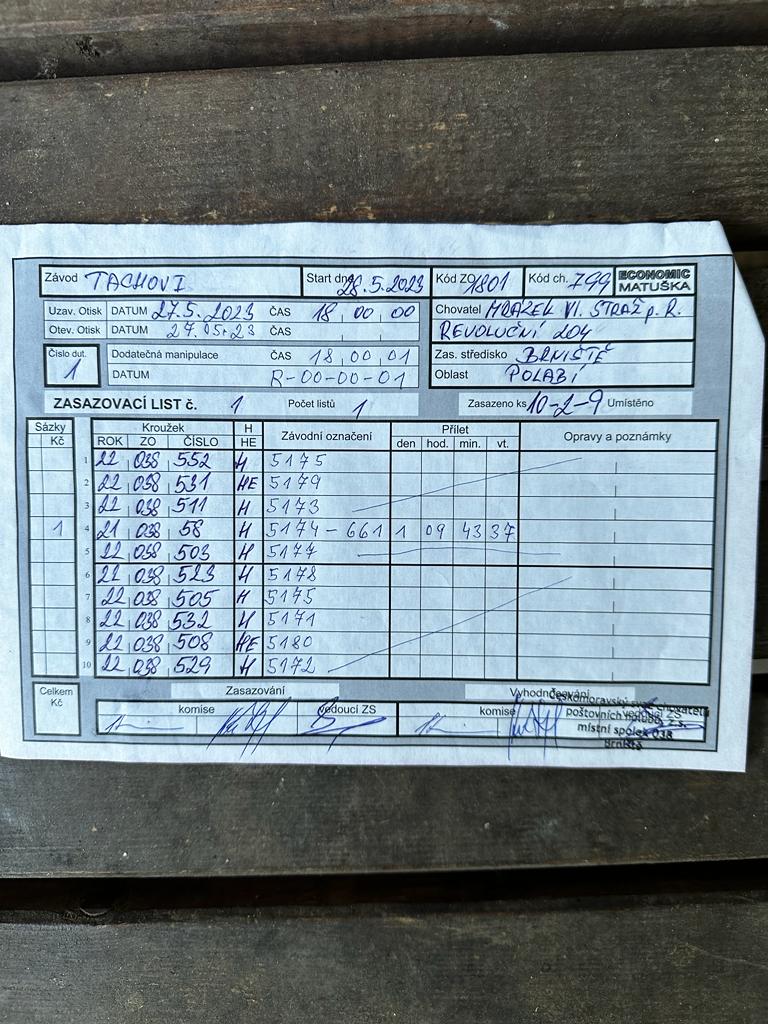 Závod TACHOV I Start dne 28.5.2023 Kód ZO 1801 Kód ch. 799 ECONOMIC MATUŠKA
Uzav. Otisk DATUM 27.5.2023 ČAS 18 00 00 Chovatel MRÁZEK Vl. STRÁŽ p. R.
Otev. Otisk DATUM 27.05.23 REVOLUČNÍ 204
Číslo dut. 1 Dodatečná manipulace ČAS 18,00,01 Zas. středisko BRNIŠTĚ
DATUM R-00-00-01 Oblast POLABÍ
ZASAZOVACÍ LIST č. 1 Počet listů 1 Zasazeno ks 10-2-9 Umístěno
Sázky Kroužek H Závodní označení Přílet Opravy a poznámky
Kč ROK ZO ČÍSLO HE den hod. min. vt.
1 22 038 552 H 5175
2 22 038 531 HE 5179
3 22 038 511 H 5173
1 4 21 038 58 H 5174 - 661 1 09 43 37
5 22 038 503 H 5177
6 22 038 523 H 5178
7 22 038 505 H 5175
8 22 038 532 H 5171
9 22 038 508 HE 5180
10 22 038 529 H 5172
Celkem Kč Zasazování Vyhodnocování
komise vedoucí ZS komise vedoucí ZS
Českomoravský svaz chovatelů
poštovních holubů z.s.
místní spolek 038
Brniště